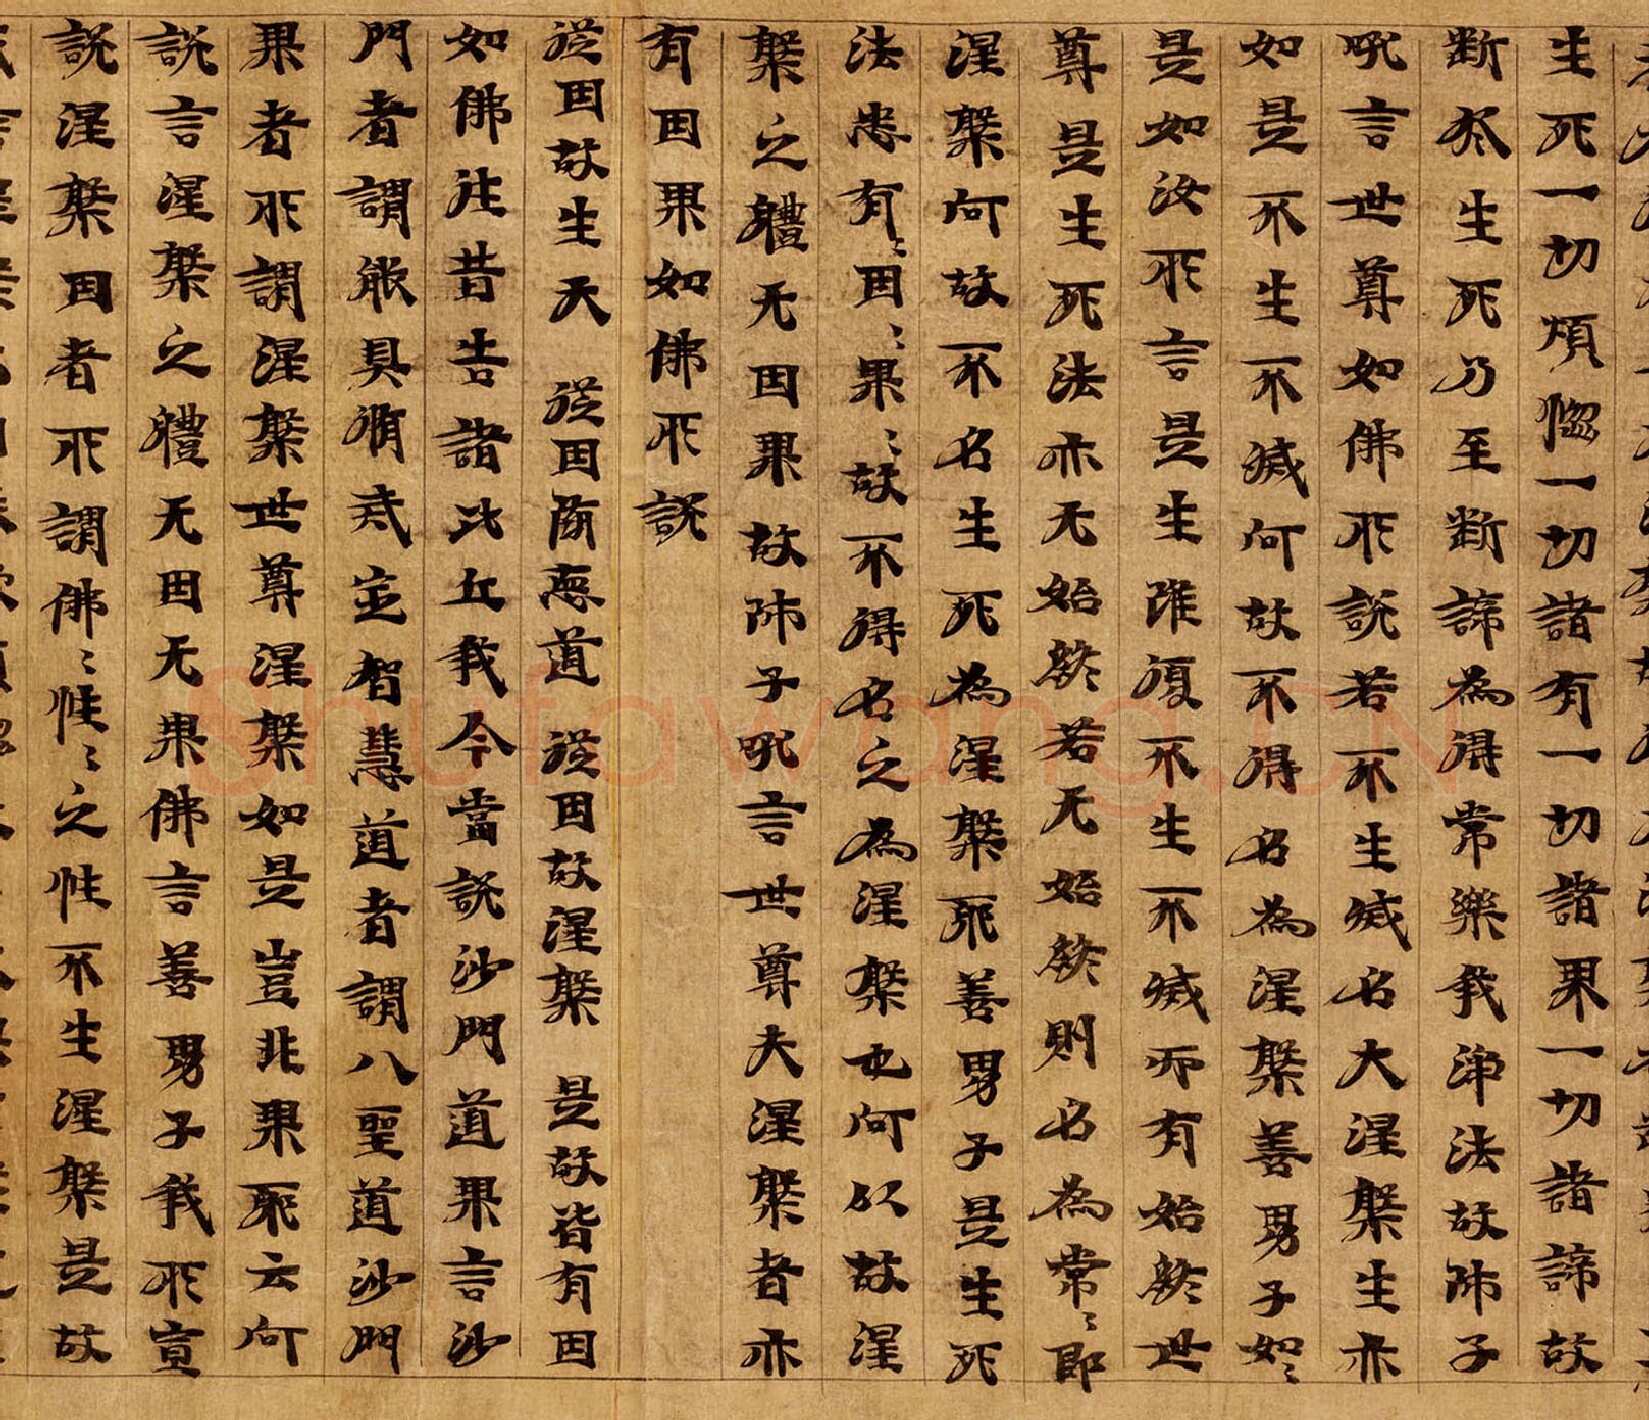 生死一切煩惱一切諸有一切諸果一切諸諦故
斷尽生死乃至斷諦為得常樂我淨法故師子
吼言世尊如佛所說若不生滅名大涅槃生亦
如是不生不滅何故不得名為涅槃善男子如〻
是如汝所言是生雖復不生不滅而有始終世
尊是生死法亦无始終若无始終則名為常〻即
涅槃何故不名生死為涅槃耶善男子是生死
法悉有〻因〻果〻故不得名之為涅槃也何以故涅
槃之體无因果故師子吼言世尊夫涅槃者亦
有因果如佛所說
從因故生天 從因墮惡道 從因故涅槃 是故皆有因
如佛往昔告諸比丘我今當說沙門道果言沙
門者謂能具脩戒定智慧道者謂八聖道沙門
果者所謂涅槃世尊涅槃如是豈非果耶云何
說言涅槃之體无因无果佛言善男子我所宣
說涅槃因者所謂佛〻性〻之性不生涅槃是故
Shufawang.CN